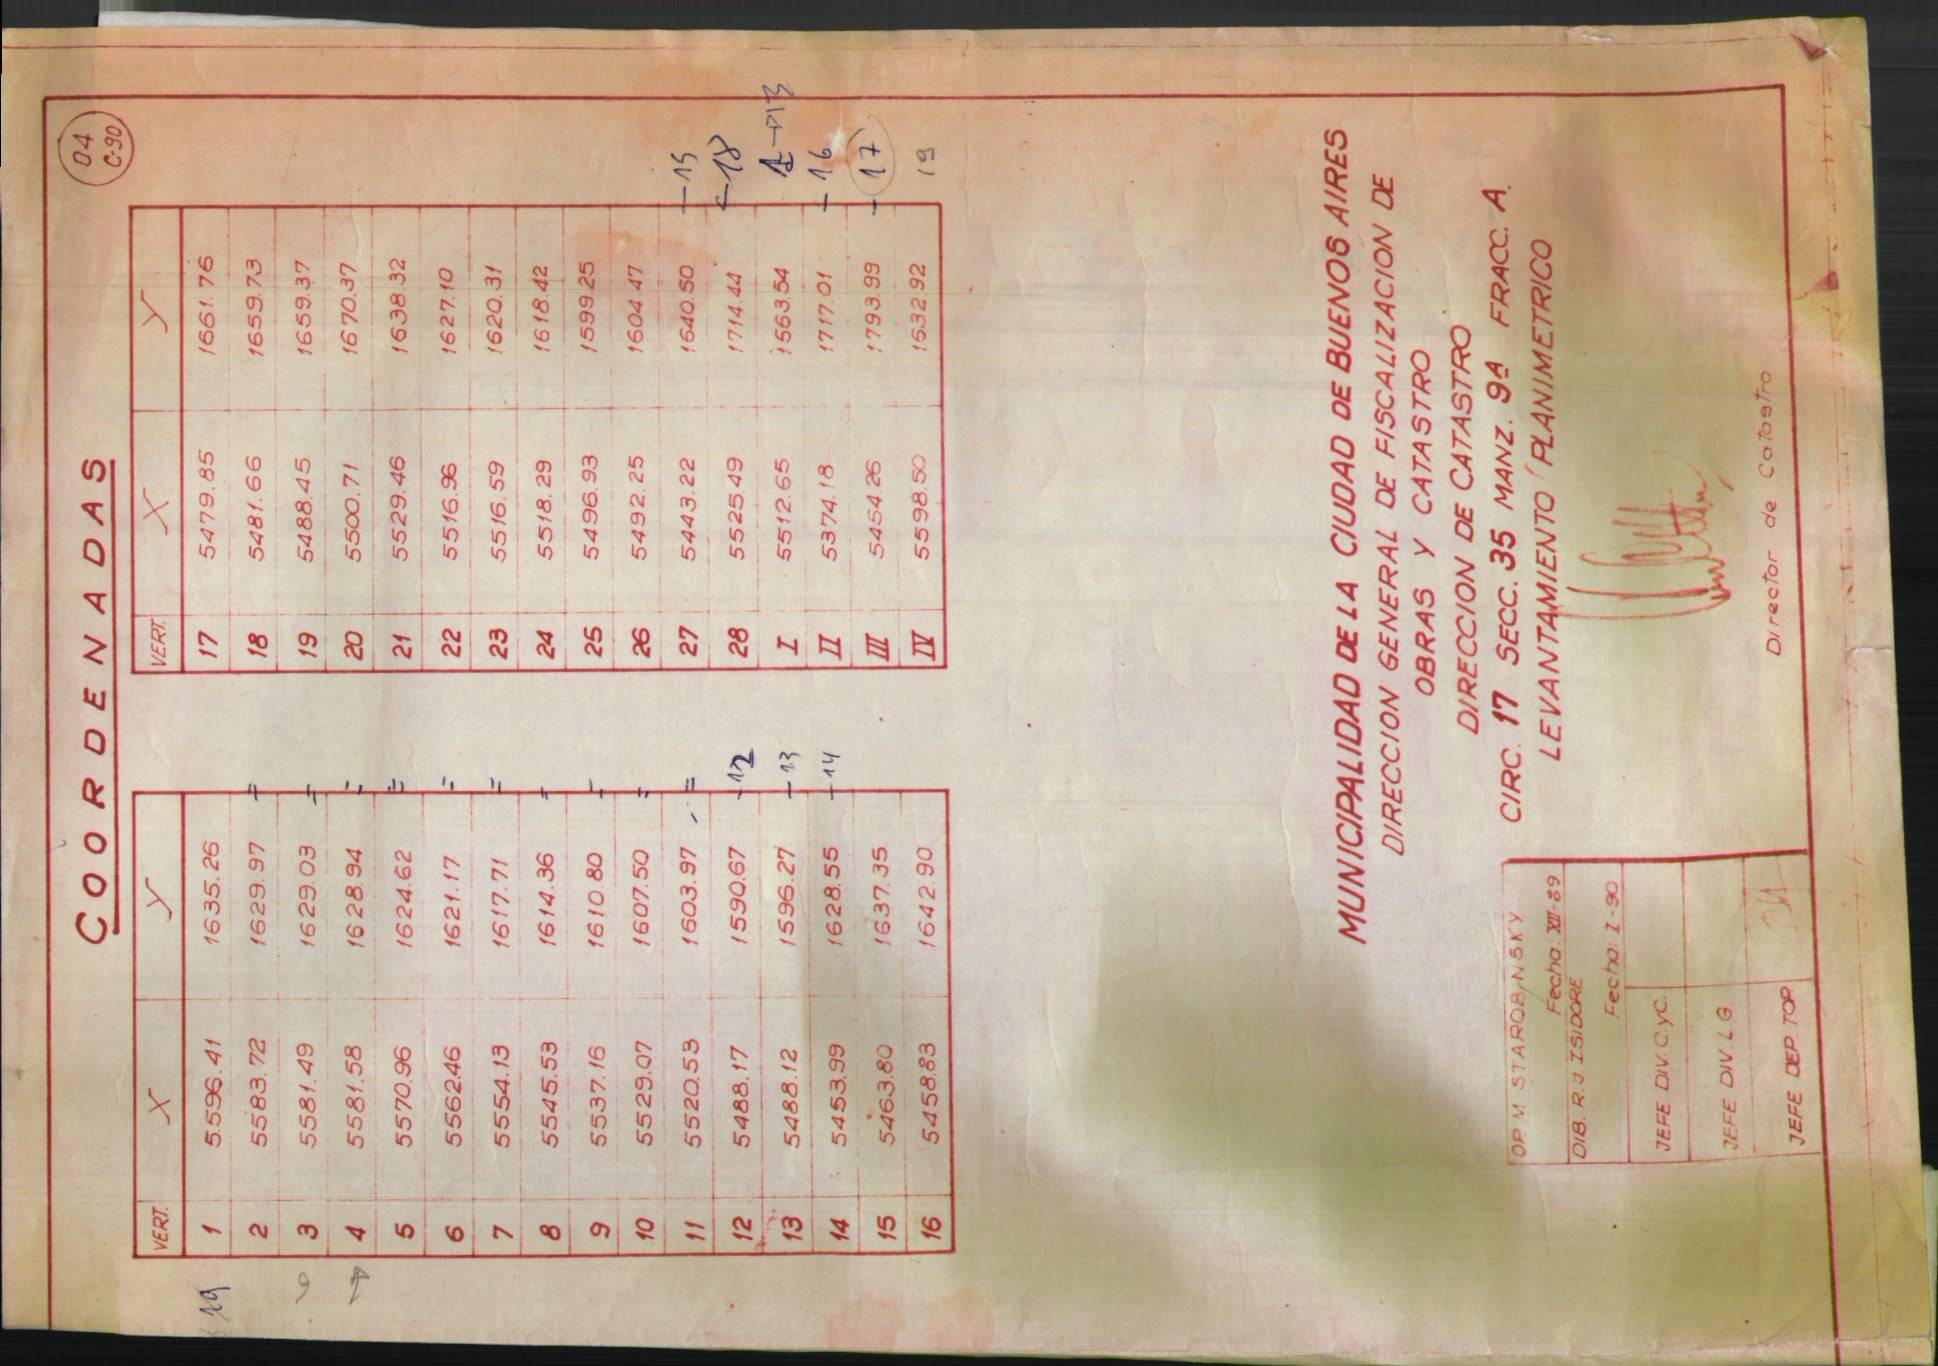 04
C-90
COORDENADAS
VERT. X Y
1 5.596.41 1635.26
2 5583.72 1629.97
3 5581.49 1629.03
4 5581.58 1628.94
5 5570.96 1624.62
6 5562.46 1621.17
7 5554.13 1617.71
8 5545.53 1614.36
9 5537.16 1610.80
10 5529.07 1607.50
11 5520.53 1603.97
12 5488.17 1590.67 -12
13 5488.12 1596.27 -13
14 5453.99 1628.55 -14
15 5463.80 1637.35
16 5458.83 1642.90
19
VERT. X Y
17 5479.85 1661.76
18 5481.66 1659.73
19 5488.45 1659.37
20 5500.71 1670.37
21 5529.46 1638.32
22 5516.96 1627.10
23 5516.59 1620.31
24 5518.29 1618.42
25 5496.93 1599.25
26 5492.25 1604.47
27 5443.22 1640.50 -15
28 5525.49 1714.44 ←18
I 5512.65 1563.54
II 5374.18 1717.01 -16
III 5454.26 1793.99 -17
IV 5598.50 1632.92 19
MUNICIPALIDAD DE LA CIUDAD DE BUENOS AIRES
DIRECCION GENERAL DE FISCALIZACION DE
OBRAS Y CATASTRO
DIRECCION DE CATASTRO
CIRC. 17 SECC. 35 MANZ. 9ª FRACC. A.
LEVANTAMIENTO PLANIMETRICO
OP. M STAROBINSKY
Fecha: XII-89
DIB. R. J. ISIDORE
Fecha: I-90
JEFE DIV. C.yC.
JEFE DIV. L G
JEFE DEP. TOP.
Director de Catastro